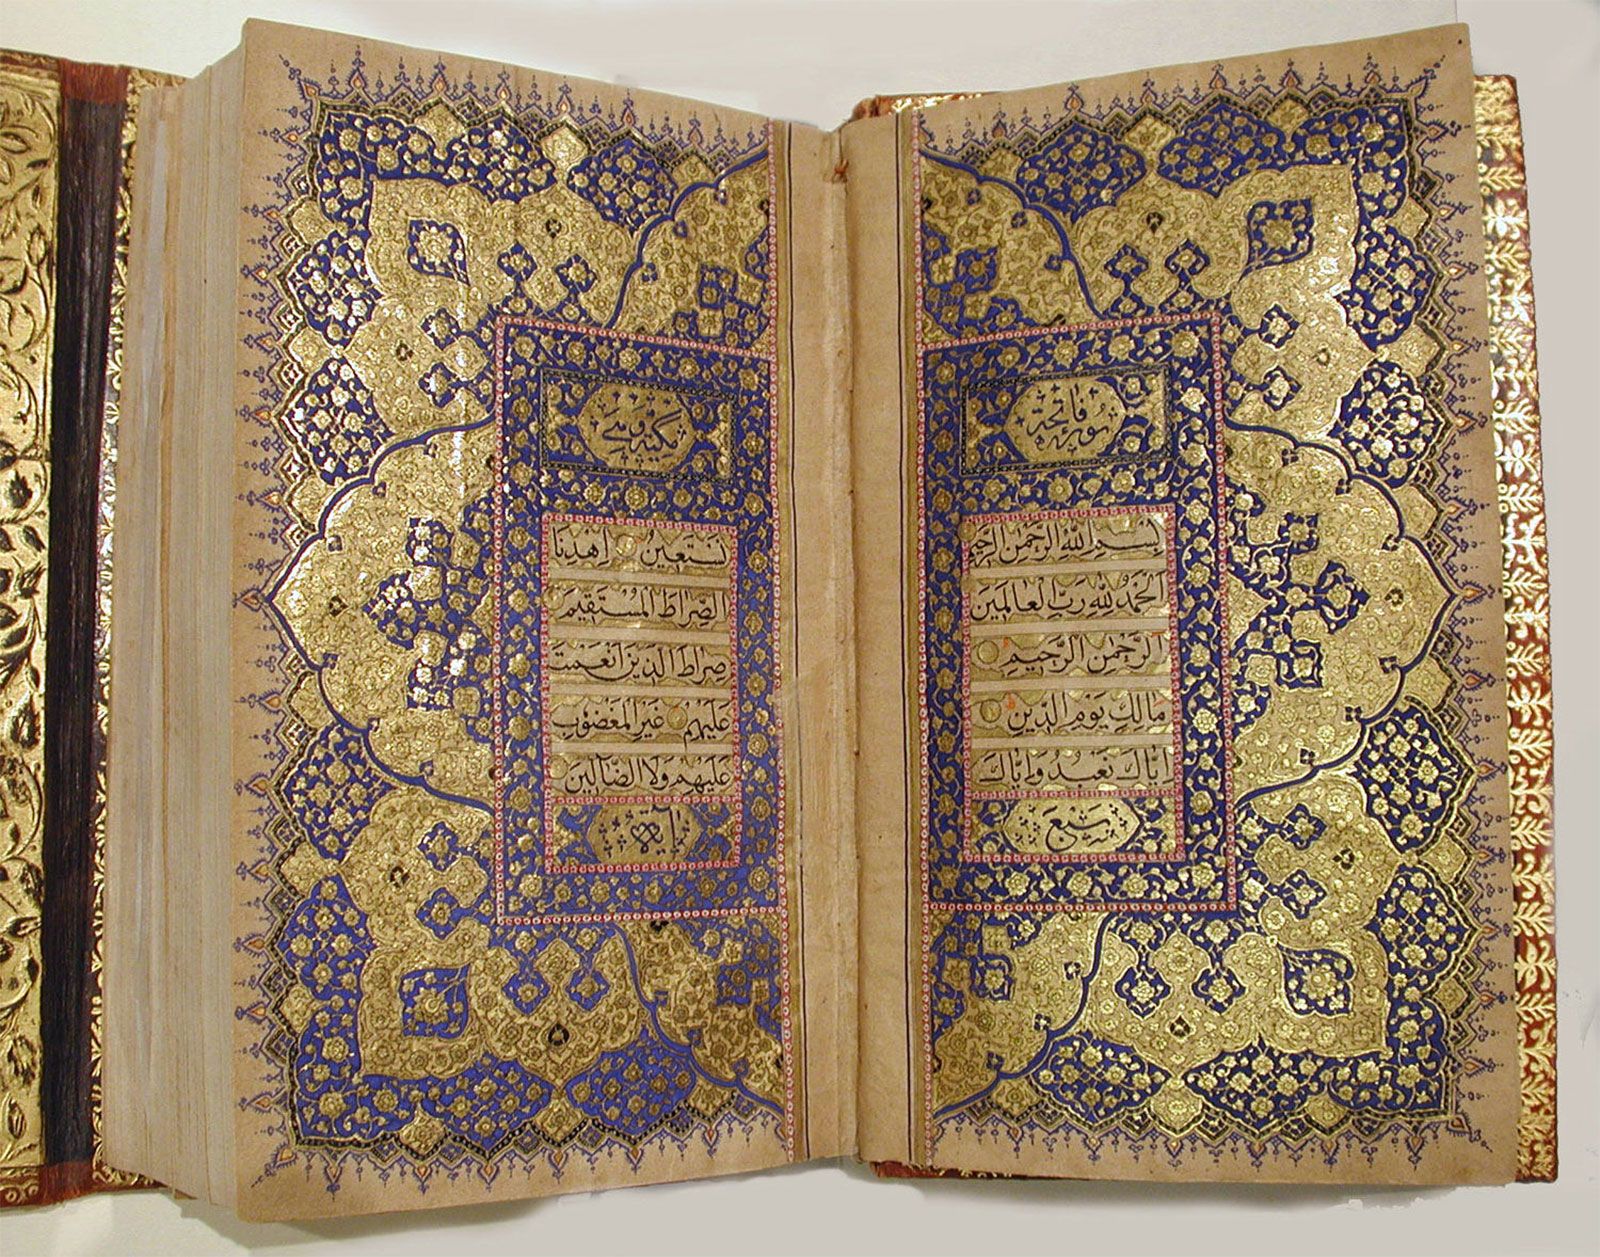 سورة فاتحة
بسم الله الرحمن الرحيم
الحمد لله رب العالمين
الرحمن الرحيم
مالك يوم الدين
اياك نعبد واياك
سبع
مكية ومى
نستعين اهدنا
الصراط المستقيم
صراط الذين انعمت
عليهم غير المغضوب
عليهم ولا الضالين
آية